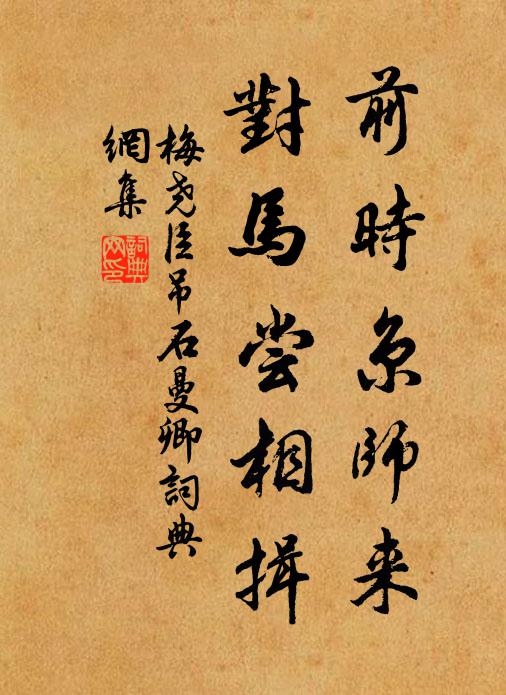 前時京師来
對馬嘗相揖
梅尧臣吊石曼卿詞典
網集
詞典
网印